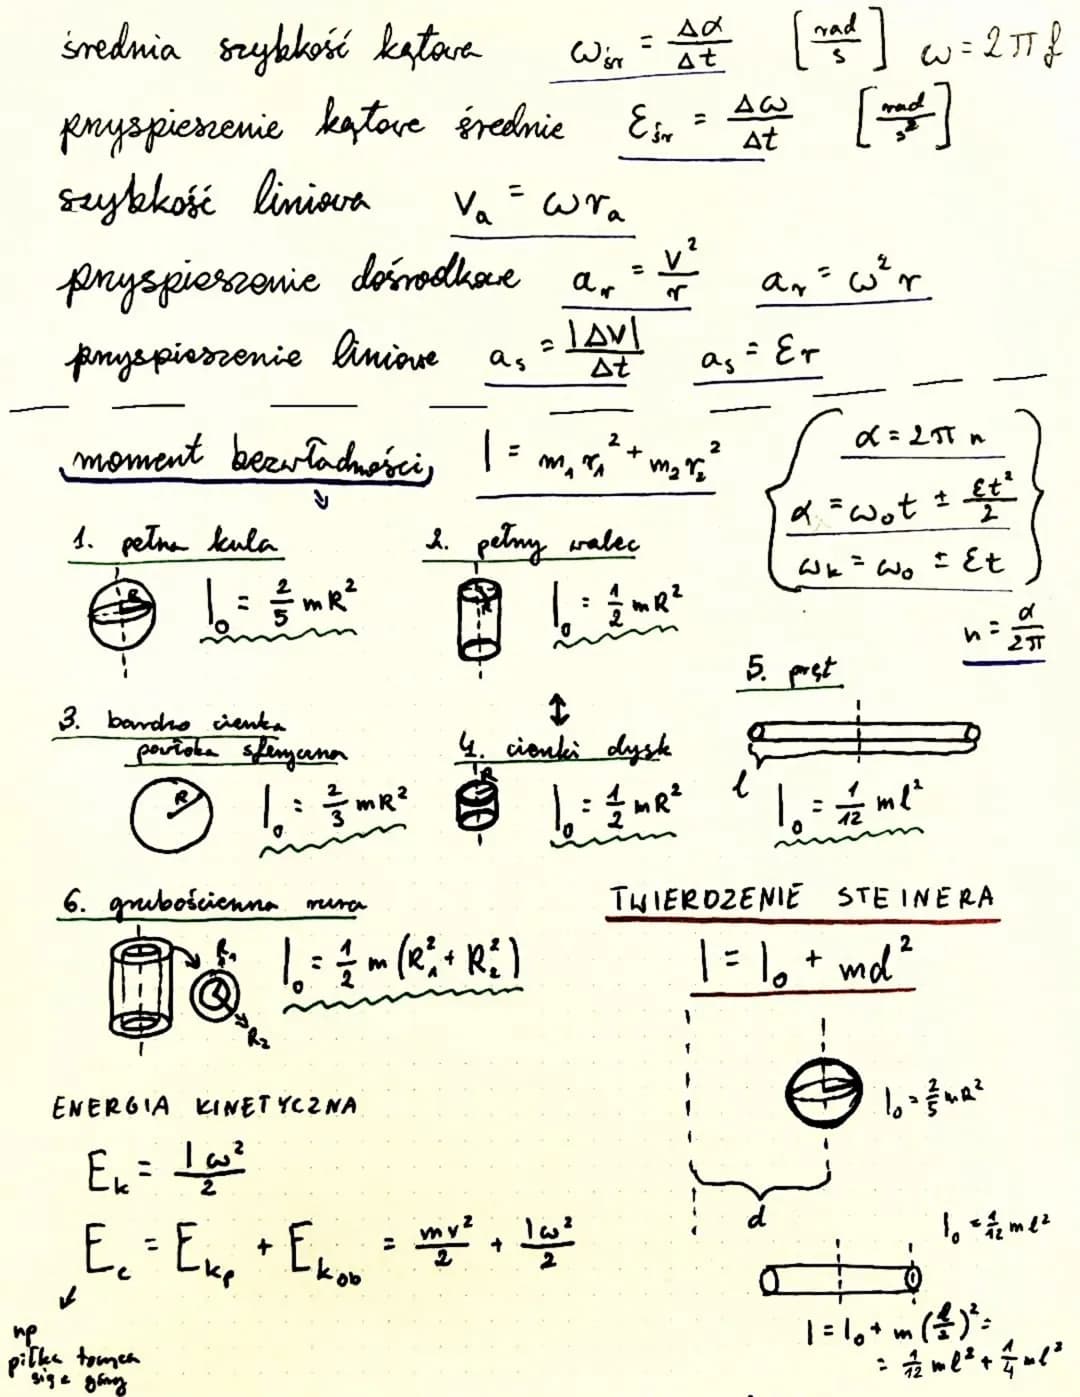 średnia szybkość kątowa ω_śr = Δα/Δt [rad/s] ω = 2πf
przyspieszenie kątowe średnie ε_śr = Δω/Δt [rad/s²]
szybkość liniowa v_a = ωr_a
przyspieszenie dośrodkowe a_r = v²/r a_r = ω²r
przyspieszenie liniowe a_s = |ΔV|/Δt a_s = εr
moment bezwładności I = m₁r₁² + m₂r₂²
α = 2πn
α = ω₀t ± εt²/2
ω_k = ω₀ ± εt
n = α/2π
1. pełna kula
R I₀ = 2/5 mR²
2. pełny walec
R I₀ = 1/2 mR²
3. bardzo cienka
powłoka sferyczna
R I₀ = 2/3 mR²
↕
4. cienki dysk
R I₀ = 1/2 mR²
5. pręt
l I₀ = 1/12 ml²
6. grubościenna rura
R₁ R₂ I₀ = 1/2 m (R₁² + R₂²)
TWIERDZENIE STEINERA
I = I₀ + md²
I₀ = 2/5 mR²
d
I₀ = 1/12 ml²
I = I₀ + m(l/2)² =
= 1/12 ml² + 1/4 ml²
ENERGIA KINETYCZNA
E_k = Iω²/2
E_c = E_kp + E_kob = mv²/2 + Iω²/2
np
piłka tocząca
się z góry